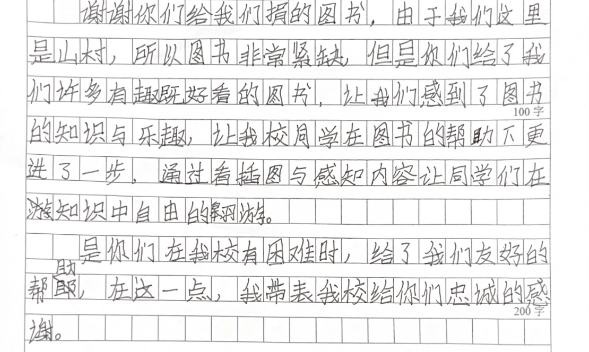 谢谢你们给我们捐的图书，由于我们这里
是山村，所以图书非常紧缺，但是你们给了我
们许多有趣既好看的图书，让我们感到了图书
100字
的知识与乐趣，让我校同学在图书的帮助下更
进了一步，通过看插图与感知内容让同学们在
知识中自由的翱游。
是你们在我校有困难时，给了我们友好的
帮助，在这一点，我带表我校给你们忠诚的感
200字
谢。